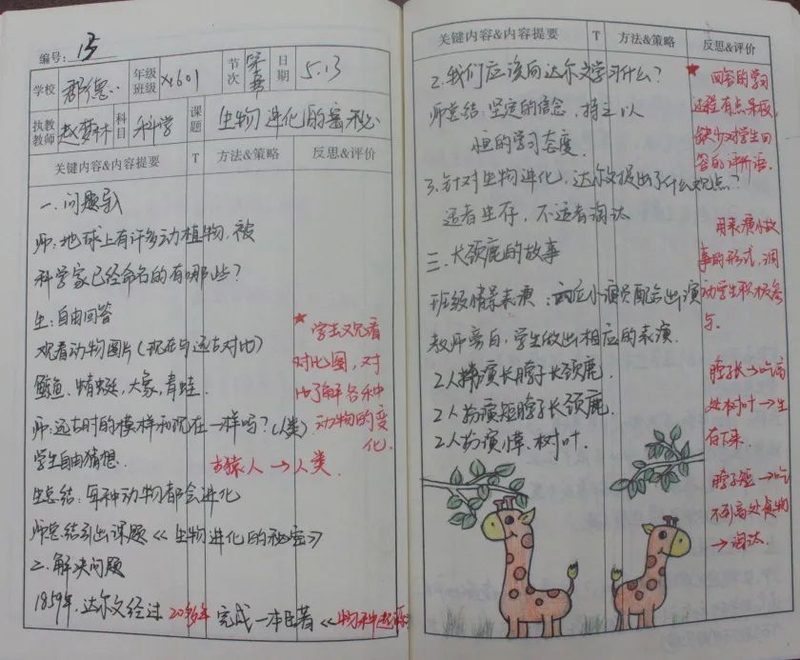 编号: 13
学校 郡德 年级班级 X1601 节次 日期 5.13
执教教师 赵 林 科目 科学 课题 生物进化的密秘
关键内容&内容提要 T 方法&策略 反思&评价
一.问题导入
师:地球上有许多动植物,被
科学家已经命名的有哪些?
生:自由回答
观看动物图片(现在与远古对比)
鳄鱼、蜻蜓、大象、青蛙.
师:远古时的模样和现在一样吗?(人类)
学生自由猜想.
古猿人→人类.
生总结:每种动物都会进化
师总结引出课题《生物进化的秘密》
二.解决问题
1859年,达尔文经过20多年完成一本巨著《物种起源》
★学生观看
对比图,对
比了解各种
动物的变
化.
关键内容&内容提要 T 方法&策略 反思&评价
2.我们应该向达尔文学习什么?
师总结:坚定的信念,持之以
恒的学习态度.
3.针对生物进化,达尔文提出了什么观点?
适者生存,不适者淘汰
三.长颈鹿的故事
班级情景表演:六位小演员配合出演
教师旁白,学生做出相应的表演.
2人扮演长脖子长颈鹿.
2人扮演短脖子长颈鹿.
2人扮演草、树叶.
★回答的学习
过程有点呆板,
缺少对学生回
答的评价语.
用表演小故
事的形式,调
动学生积极参
与.
脖子长→吃高
处树叶→生
存下来.
脖子短→吃
不到高处食物
→淘汰.